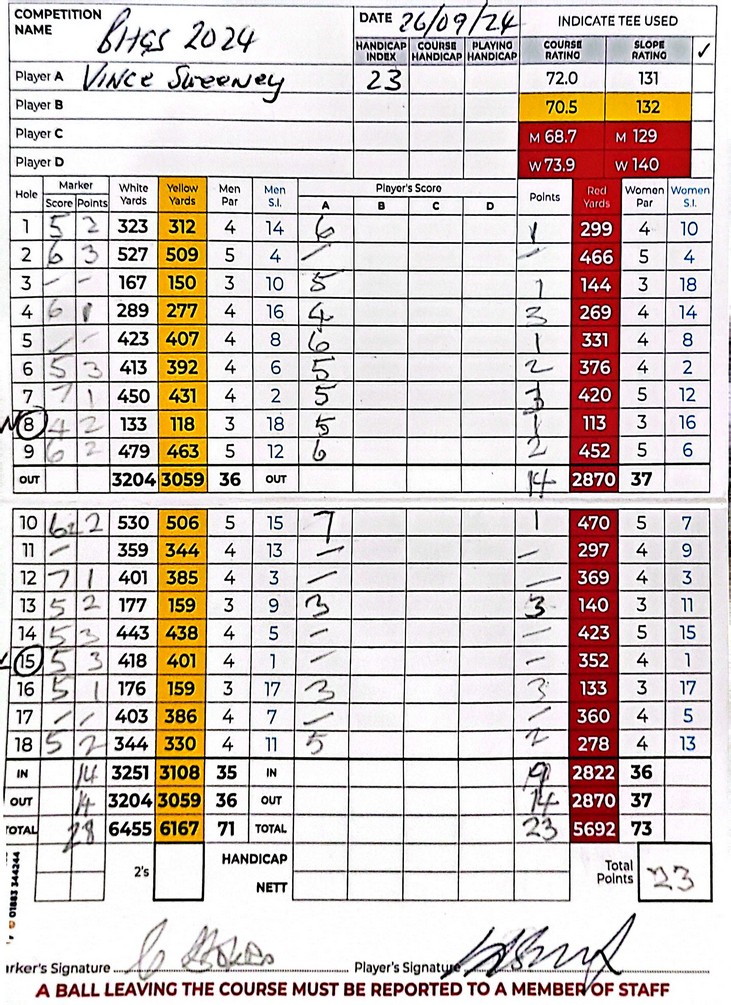 COMPETITION NAME BHGS 2024 DATE 26/09/24 INDICATE TEE USED
HANDICAP INDEX COURSE HANDICAP PLAYING HANDICAP COURSE RATING SLOPE RATING ✓
Player A VINCE SWEENEY 23 72.0 131
Player B 70.5 132
Player C M 68.7 M 129
Player D W 73.9 W 140
Hole Marker Score Points White Yards Yellow Yards Men Par Men S.I. Player's Score A B C D Points Red Yards Women Par Women S.I.
1 5 2 323 312 4 14 6 1 299 4 10
2 6 3 527 509 5 4 / - 466 5 4
3 - - 167 150 3 10 5 1 144 3 18
4 6 1 289 277 4 16 4 3 269 4 14
5 - - 423 407 4 8 6 1 331 4 8
6 5 3 413 392 4 6 5 2 376 4 2
7 7 1 450 431 4 2 5 3 420 5 12
8 4 2 133 118 3 18 5 1 113 3 16
9 6 2 479 463 5 12 6 2 452 5 6
OUT 3204 3059 36 OUT 14 2870 37
10 6 2 530 506 5 15 7 1 470 5 7
11 - 359 344 4 13 - - 297 4 9
12 7 1 401 385 4 3 - - 369 4 3
13 5 2 177 159 3 9 3 3 140 3 11
14 5 3 443 438 4 5 - - 423 5 15
15 5 3 418 401 4 1 - - 352 4 1
16 5 1 176 159 3 17 3 3 133 3 17
17 / / 403 386 4 7 / / 360 4 5
18 5 2 344 330 4 11 5 2 278 4 13
IN 14 3251 3108 35 IN 9 2822 36
OUT 14 3204 3059 36 OUT 14 2870 37
TOTAL 28 6455 6167 71 TOTAL 23 5692 73
2's HANDICAP Total Points 23
NETT
01883 344244
arker's Signature Player's Signature
A BALL LEAVING THE COURSE MUST BE REPORTED TO A MEMBER OF STAFF